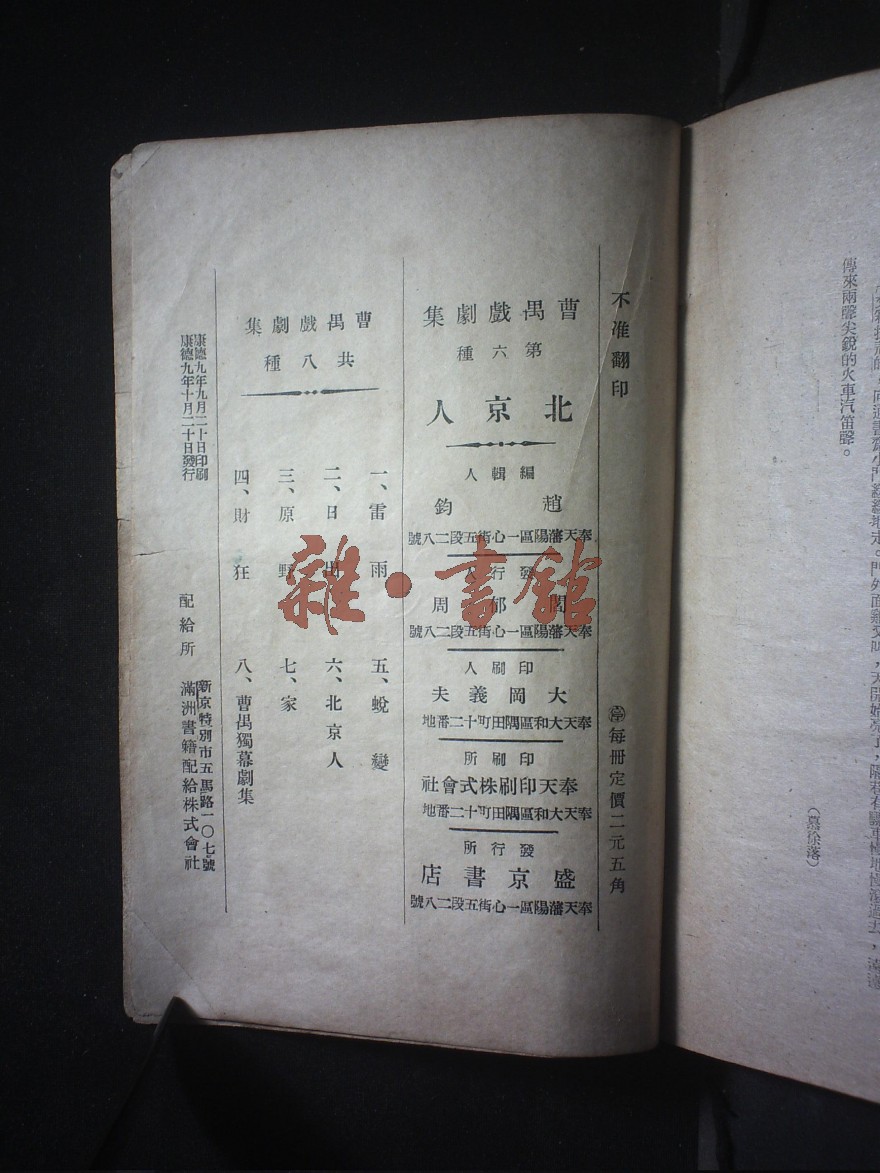 向通書齋小門緩緩地走。門外面雞又叫，天開始亮了，隔巷有騾車慢慢地滾過去，遠遠
傳來兩聲尖銳的火車汽笛聲。
（幕徐落）
不准翻印
每冊定價二元五角
曹禺戲劇集
第六種
北京人
編輯人
趙鈞
奉天瀋陽區一心街五段二八號
發行人
閻郁周
奉天瀋陽區一心街五段二八號
印刷人
大岡義夫
奉天大和區隅田町十二番地
印刷所
奉天印刷株式會社
奉天大和區隅田町十二番地
發行所
盛京書店
奉天瀋陽區一心街五段二八號
曹禺戲劇集
共八種
一、雷雨
二、日出
三、原野
四、財狂
五、蛻變
六、北京人
七、家
八、曹禺獨幕劇集
康德九年九月二十日印刷
康德九年十月二十日發行
配給所
新京特別市五馬路一〇七號
滿洲書籍配給株式會社
雜·書館